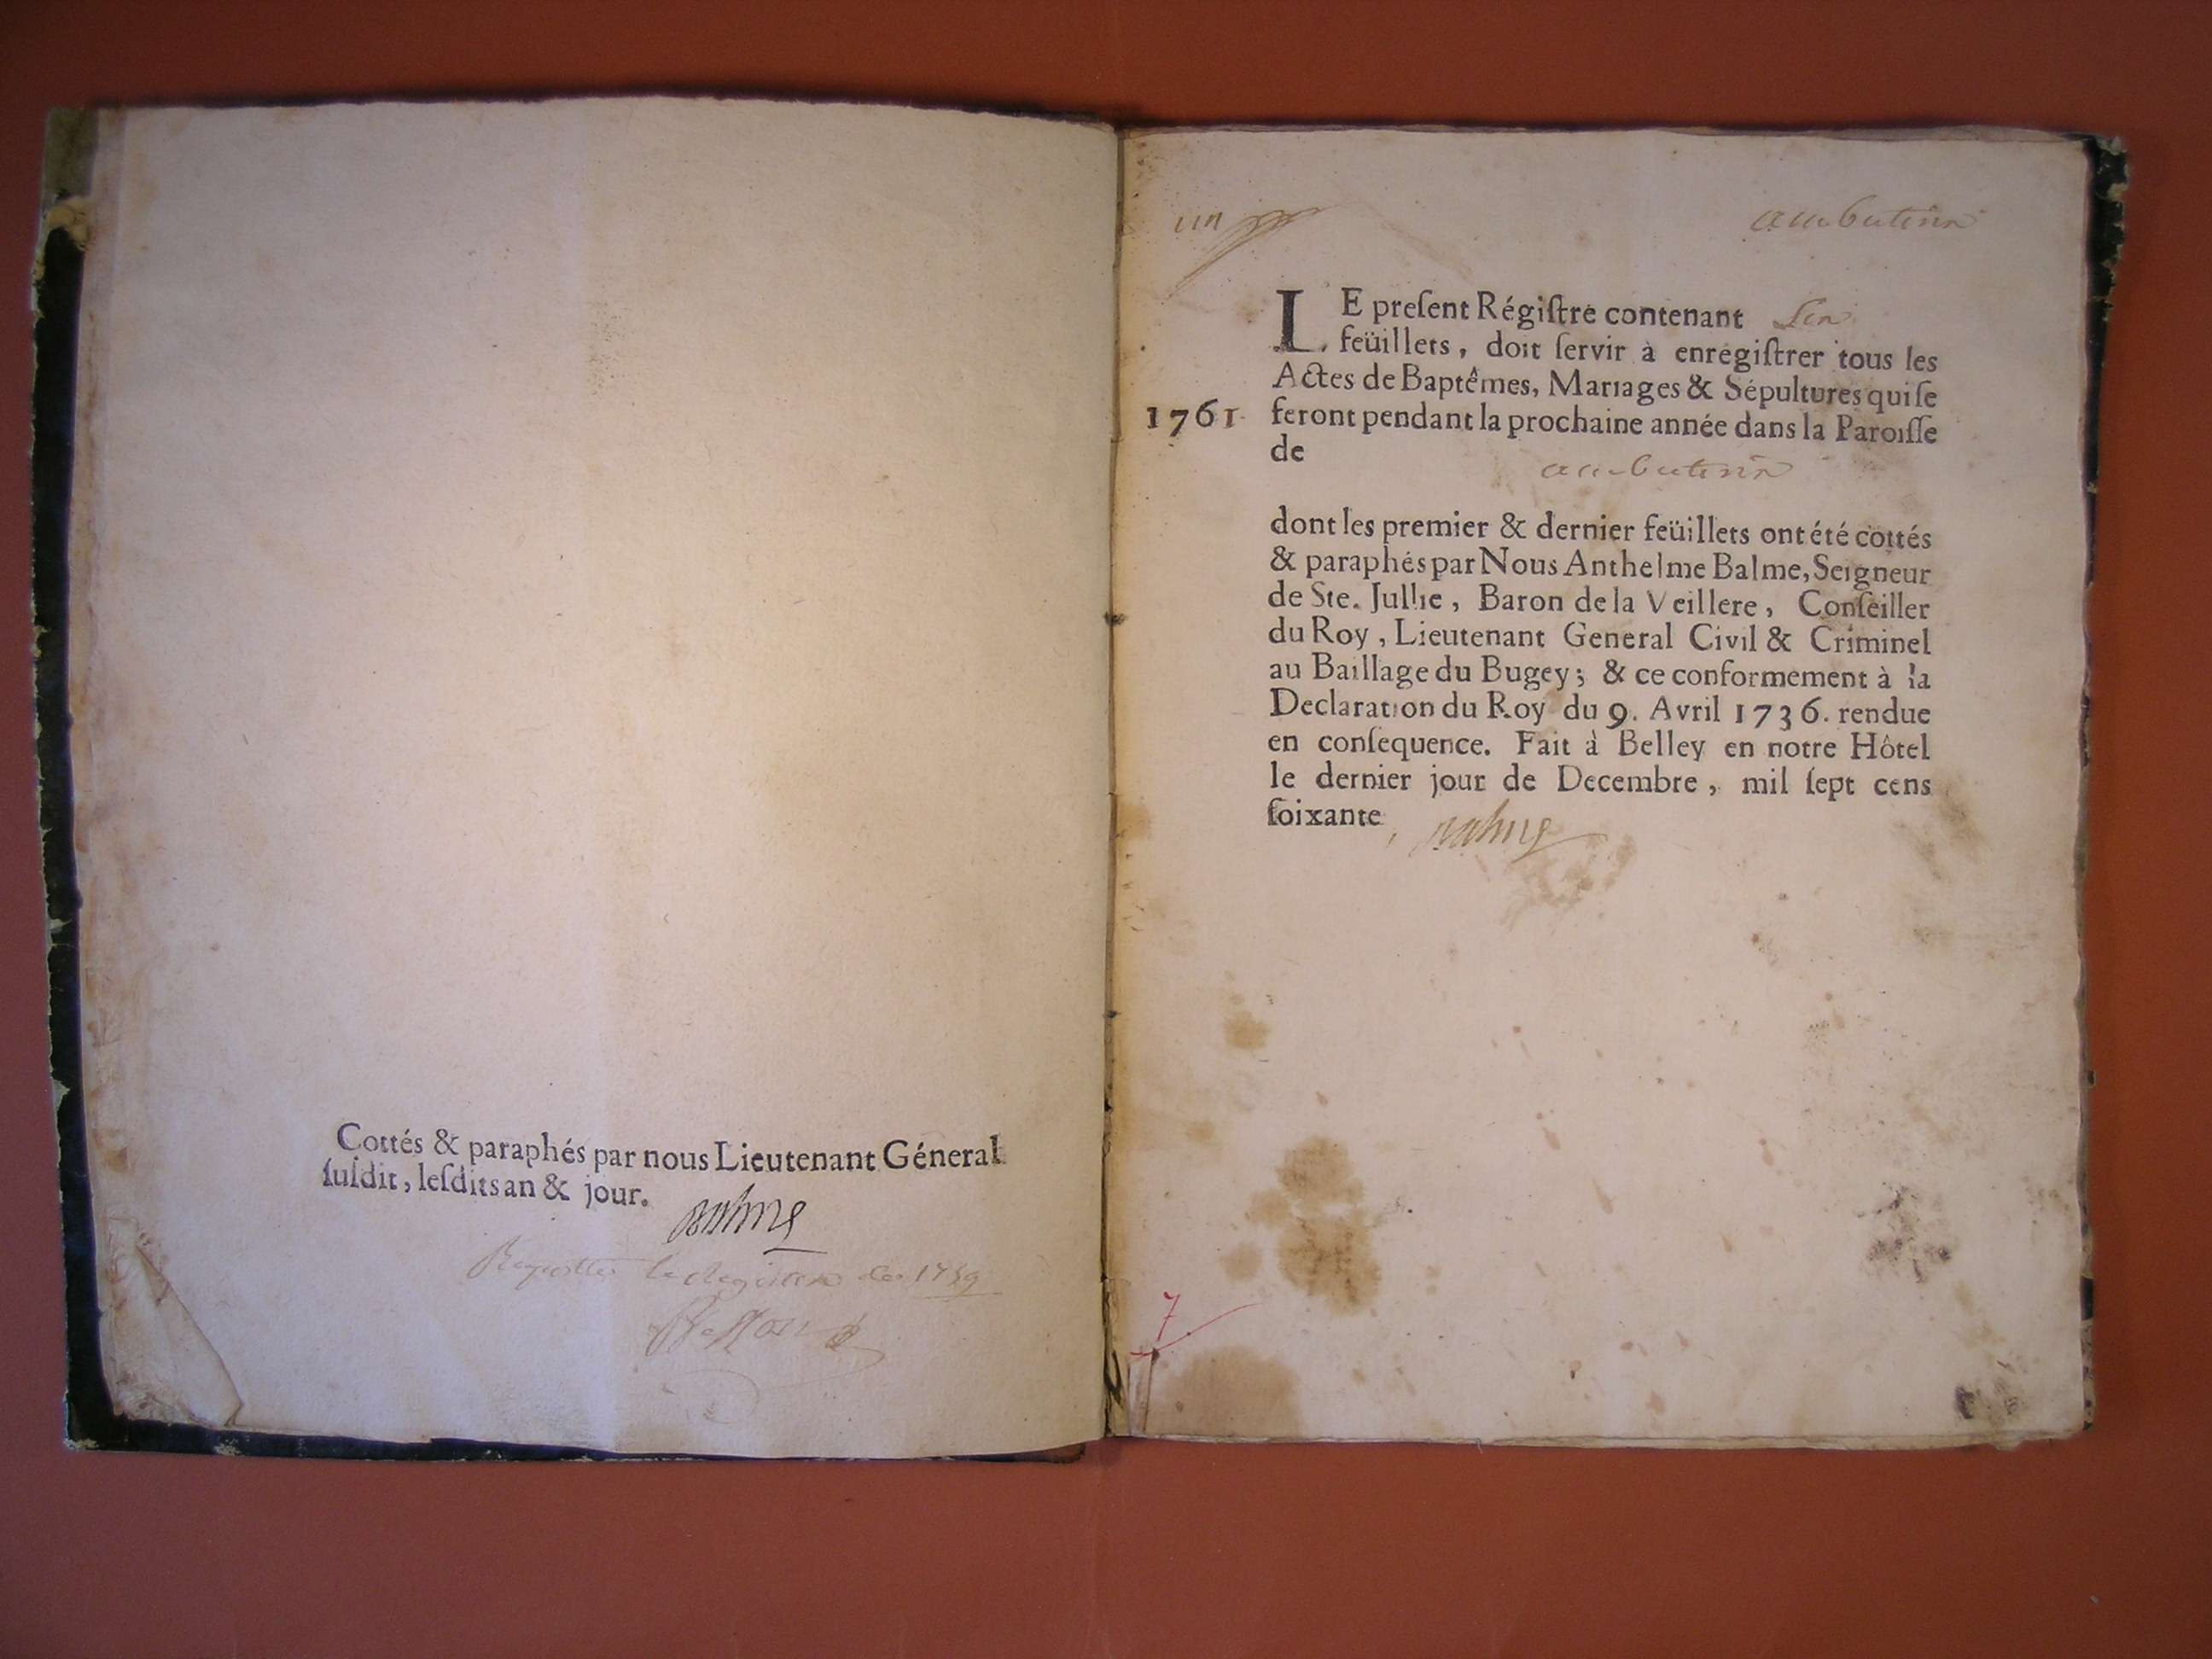 Cottés & paraphés par nous Lieutenant Géneral
ſuſdit, leſdits an & jour.
balme
un
ambutrix
LE preſent Régiſtre contenant
feüillets, doit ſervir à enregiſtrer tous les
Actes de Baptêmes, Mariages & Sépultures qui ſe
1761 feront pendant la prochaine année dans la Paroiſſe
de
ambutrix
dont les premier & dernier feüillets ont été cottés
& paraphés par Nous Anthelme Balme, Seigneur
de Ste. Jullie, Baron de la Veillere, Conſeiller
du Roy, Lieutenant General Civil & Criminel
au Baillage du Bugey; & ce conformement à la
Declaration du Roy du 9. Avril 1736. rendue
en conſequence. Fait à Belley en notre Hôtel
le dernier jour de Decembre, mil ſept cens
ſoixante
balme
7